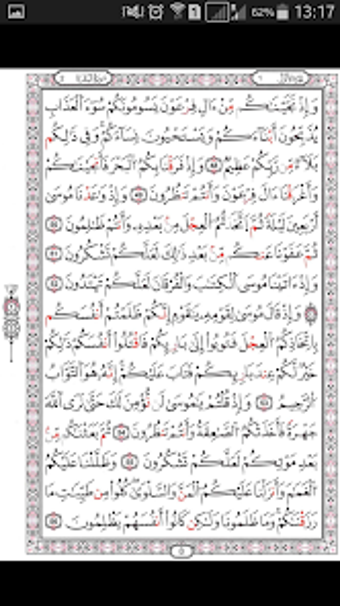 62% 13:17
وَإِذْ نَجَّيْنَٰكُم مِّنْ ءَالِ فِرْعَوْنَ يَسُومُونَكُمْ سُوٓءَ ٱلْعَذَابِ
يُذَبِّحُونَ أَبْنَآءَكُمْ وَيَسْتَحْيُونَ نِسَآءَكُمْ وَفِى ذَٰلِكُم
بَلَآءٌ مِّن رَّبِّكُمْ عَظِيمٌ ۝٤٩ وَإِذْ فَرَقْنَا بِكُمُ ٱلْبَحْرَ فَأَنجَيْنَٰكُمْ
وَأَغْرَقْنَآ ءَالَ فِرْعَوْنَ وَأَنتُمْ تَنظُرُونَ ۝٥٠ وَإِذْ وَٰعَدْنَا مُوسَىٰٓ
أَرْبَعِينَ لَيْلَةً ثُمَّ ٱتَّخَذْتُمُ ٱلْعِجْلَ مِنۢ بَعْدِهِۦ وَأَنتُمْ ظَٰلِمُونَ ۝٥١
ثُمَّ عَفَوْنَا عَنكُم مِّنۢ بَعْدِ ذَٰلِكَ لَعَلَّكُمْ تَشْكُرُونَ ۝٥٢
وَإِذْ ءَاتَيْنَا مُوسَى ٱلْكِتَٰبَ وَٱلْفُرْقَانَ لَعَلَّكُمْ تَهْتَدُونَ
۝٥٣ وَإِذْ قَالَ مُوسَىٰ لِقَوْمِهِۦ يَٰقَوْمِ إِنَّكُمْ ظَلَمْتُمْ أَنفُسَكُم
بِٱتِّخَاذِكُمُ ٱلْعِجْلَ فَتُوبُوٓا۟ إِلَىٰ بَارِئِكُمْ فَٱقْتُلُوٓا۟ أَنفُسَكُمْ ذَٰلِكُمْ
خَيْرٌ لَّكُمْ عِندَ بَارِئِكُمْ فَتَابَ عَلَيْكُمْ إِنَّهُۥ هُوَ ٱلتَّوَّابُ
ٱلرَّحِيمُ ۝٥٤ وَإِذْ قُلْتُمْ يَٰمُوسَىٰ لَن نُّؤْمِنَ لَكَ حَتَّىٰ نَرَى ٱللَّهَ
جَهْرَةً فَأَخَذَتْكُمُ ٱلصَّٰعِقَةُ وَأَنتُمْ تَنظُرُونَ ۝٥٥ ثُمَّ بَعَثْنَٰكُم مِّنۢ
بَعْدِ مَوْتِكُمْ لَعَلَّكُمْ تَشْكُرُونَ ۝٥٦ وَظَلَّلْنَا عَلَيْكُمُ
ٱلْغَمَامَ وَأَنزَلْنَا عَلَيْكُمُ ٱلْمَنَّ وَٱلسَّلْوَىٰ كُلُوا۟ مِن طَيِّبَٰتِ مَا
رَزَقْنَٰكُمْ وَمَا ظَلَمُونَا وَلَٰكِن كَانُوٓا۟ أَنفُسَهُمْ يَظْلِمُونَ ۝٥٧